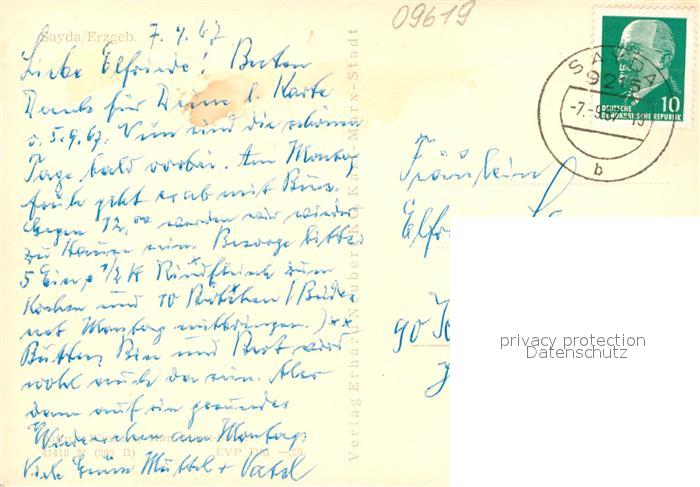 09619
Sayda/Erzgeb.
7.9.67
Liebe Elfriede! Besten
Dank für Deine l. Karte
v. 5.9.67. Nun sind die schönen
Tage bald vorbei. Am Montag
früh geht es ab mit Bus.
Gegen 12.00 werden wir wieder
zu Hause sein. Besorge bitte
5 Eier, 1/2 K Rindfleisch zum
Kochen und 10
Montag mitbringen.)
Butter, und Brot wird
wohl auch da sein. Also
dann auf ein gesundes
Wiedersehen am Montag
Viele Grüße Muttel + Vatel
41418 N (203 B) EVP DM -,20
Verlag Erhard Neubert KG, Karl-Marx-Stadt
SAYDA
9215
-7.-9.67
b
10
DEUTSCHE
DEMOKRATISCHE REPUBLIK
Fräulein
Elfr
90
privacy protection
Datenschutz